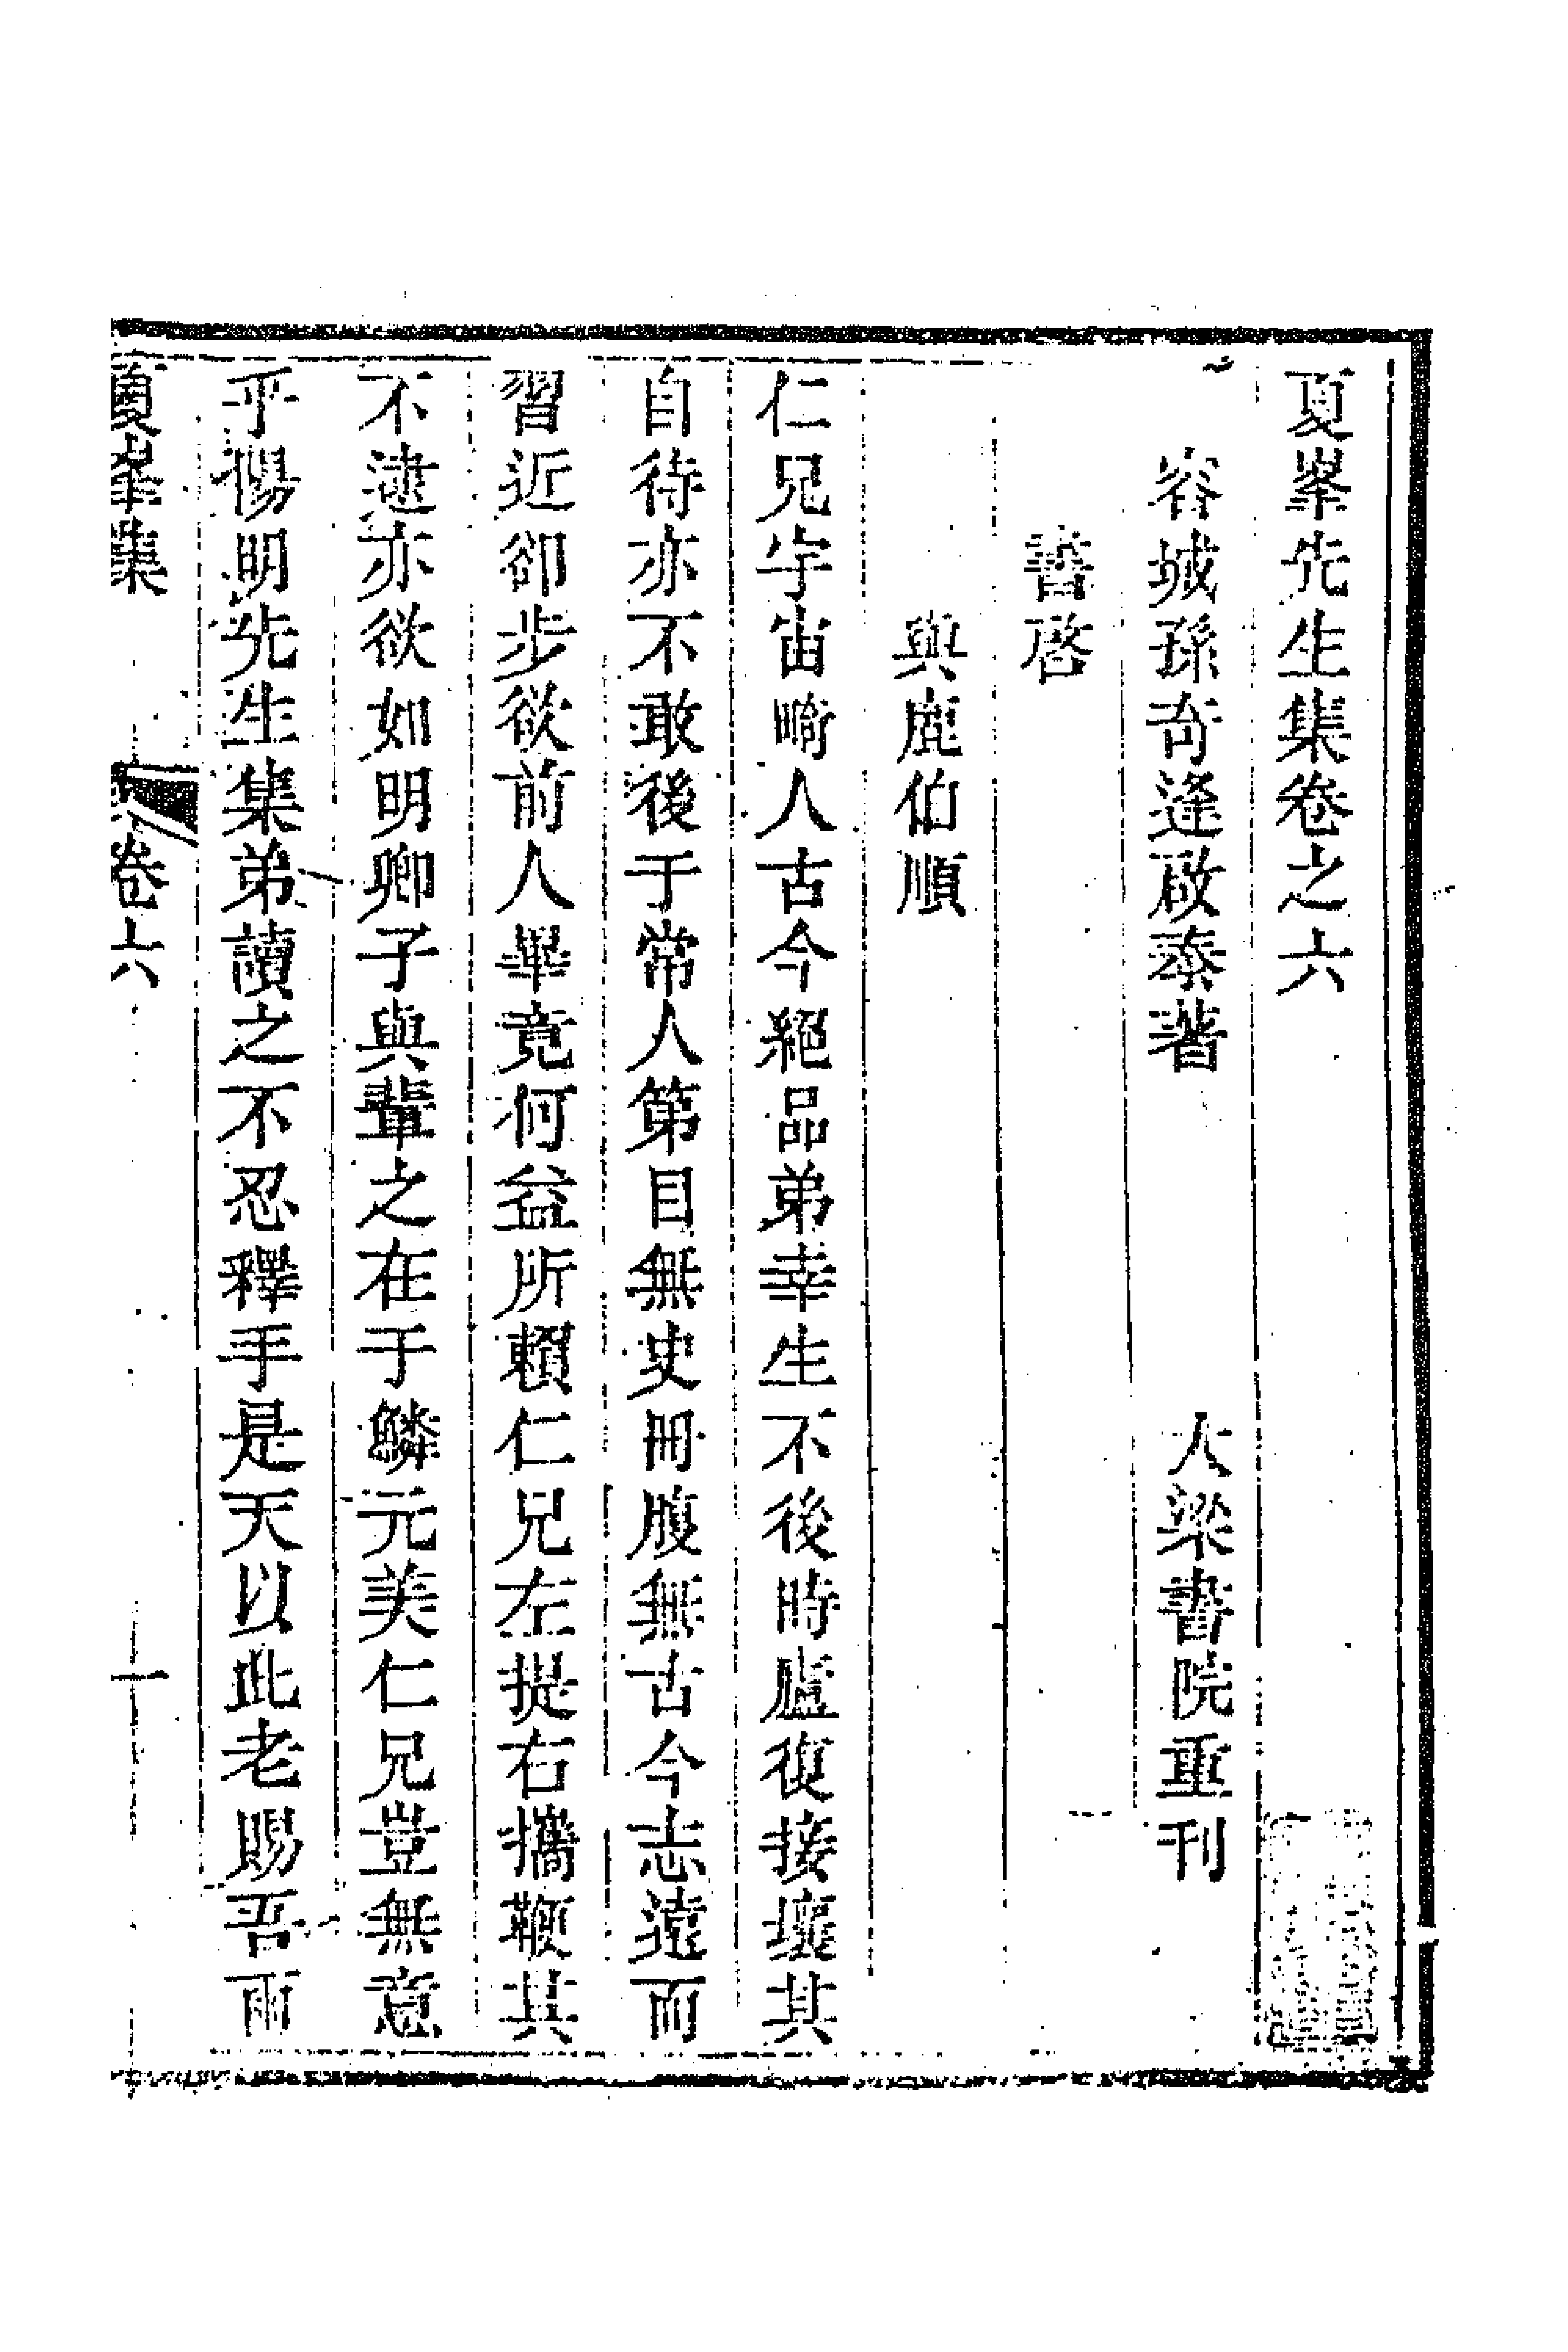 夏峯先生集卷之六
容城孫奇逢啟泰著　大梁書院重刊
書啓
與鹿伯順
仁兄宇宙畸人古今絕品弟幸生不後時廬復接壤其
自待亦不敢後于常人第目無史冊腹無古今志遠而
習近卻步欲前人畢竟何益所賴仁兄左提右攜鞭其
不逮亦欲如明卿子與輩之在于鱗元美仁兄豈無意
乎陽明先生集弟讀之不忍釋手是天以此老賜吾兩
夏峯集　卷六　一